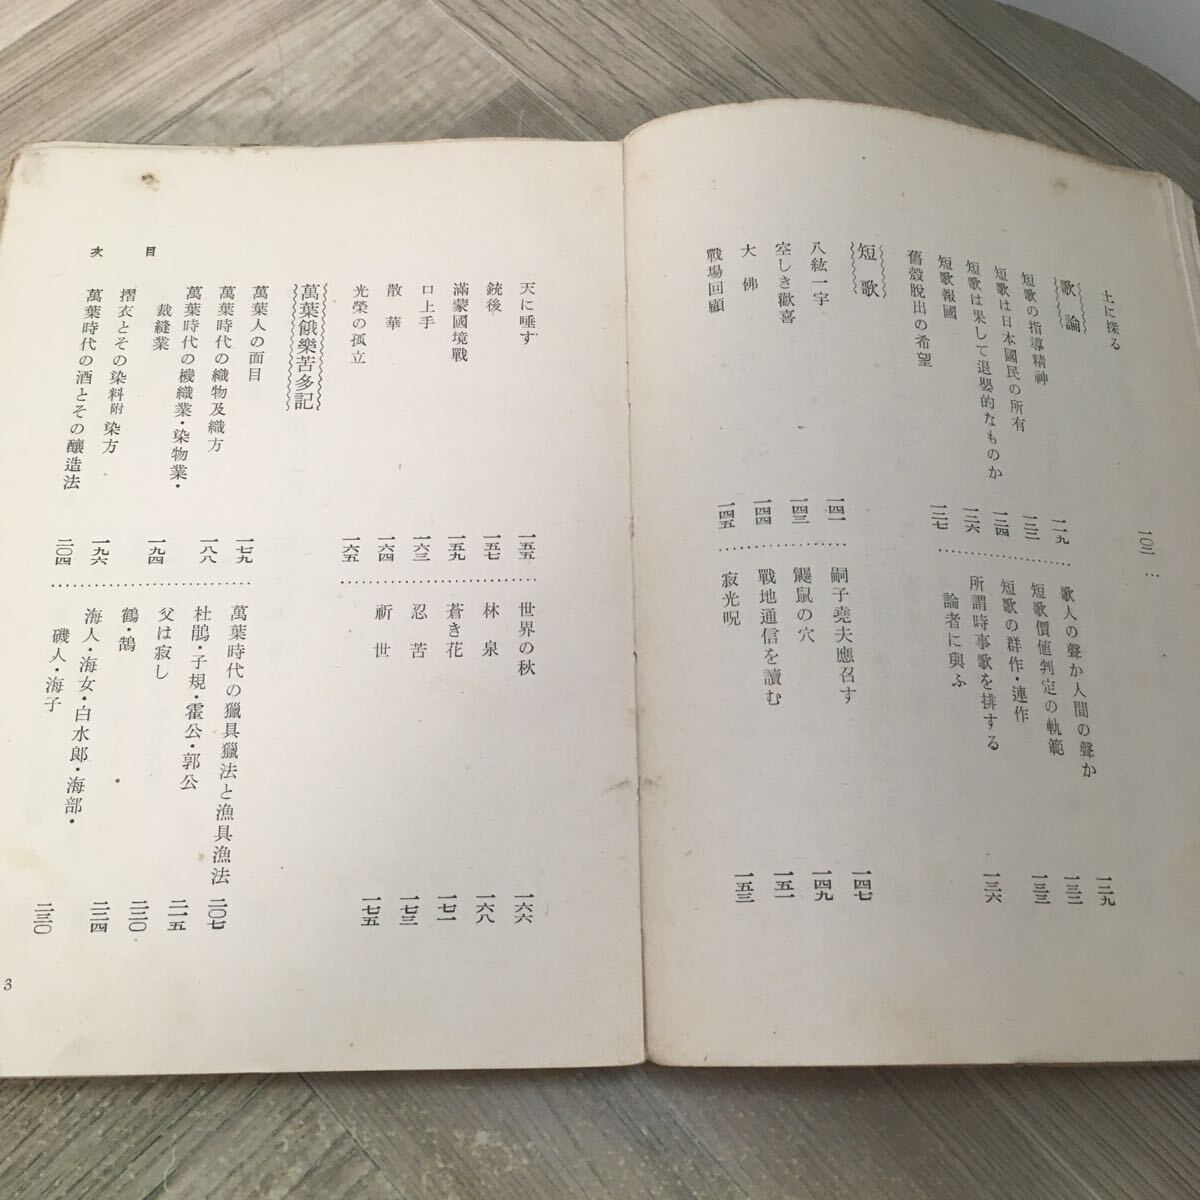 土に探る
一〇三
歌論
短歌の指導精神
一一九
短歌は日本國民の所有
一二二
短歌は果して退嬰的なものか
一二四
短歌報國
一二六
舊殼脱出の希望
一二七
歌人の聲か人間の聲か
一二九
短歌價値判定の軌範
一三二
短歌の群作・連作
一三三
所謂時事歌を排する
論者に與ふ
一三六
短歌
八紘一宇
一四一
空しき歡喜
一四三
大佛
一四四
戰場回顧
一四五
嗣子堯夫應召す
一四七
鼴鼠の穴
一四九
戰地通信を讀む
一五一
寂光呪
一五三
天に唾す
一五五
銃後
一五七
滿蒙國境戰
一五九
口上手
一六三
散華
一六四
光榮の孤立
一六五
世界の秋
一六六
林泉
一六八
蒼き花
一七一
忍苦
一七三
祈世
一七五
萬葉餓樂苦多記
萬葉人の面目
一七九
萬葉時代の織物及織方
一八八
萬葉時代の機織業・染物業・
裁縫業
一九四
摺衣とその染料附染方
一九六
萬葉時代の酒とその釀造法
二〇四
萬葉時代の獵具獵法と漁具漁法
二〇七
杜鵑・子規・霍公・郭公
二一五
父は寂し
二二〇
鶴・鵠
二二四
海人・海女・白水郎・海部・
磯人・海子
二三〇
目次
3